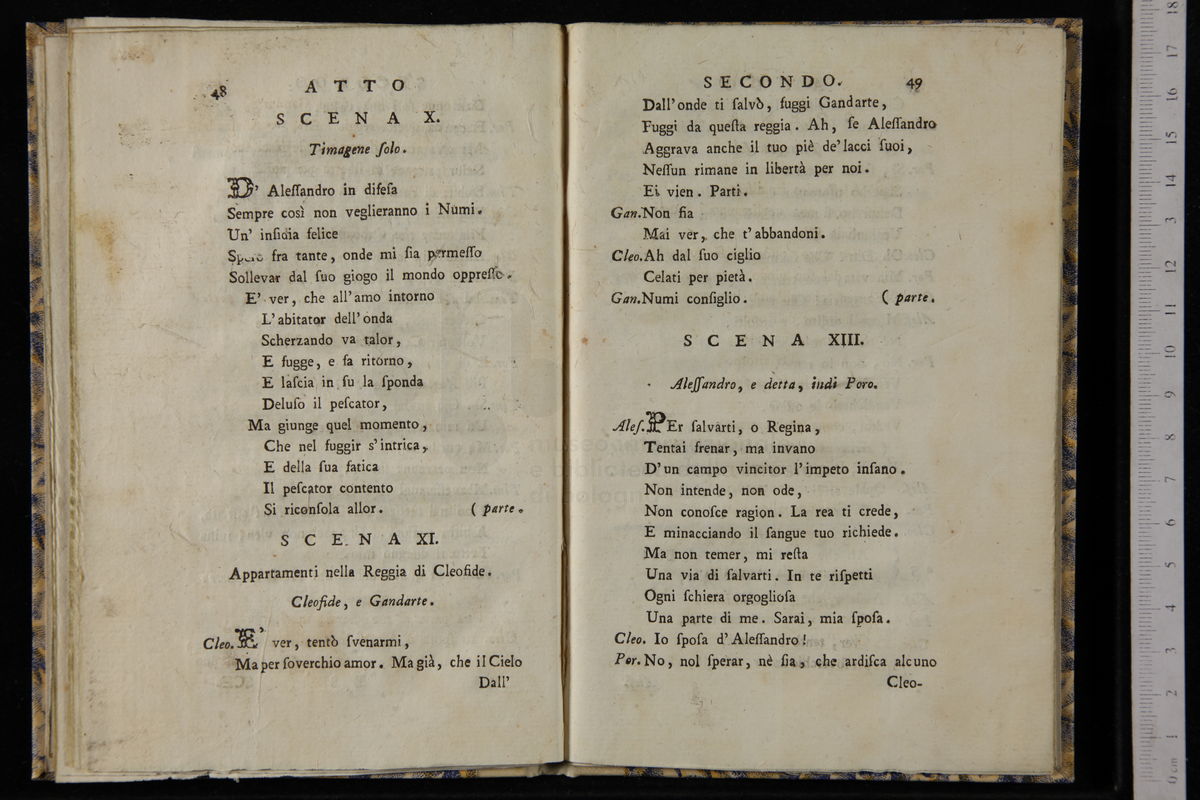 48 ATTO
SCENA X.
Timagene ſolo.
D' Aleſſandro in difeſa
Sempre così non veglieranno i Numi.
Un' inſidia felice
Spero fra tante, onde mi ſia permeſſo
Sollevar dal ſuo giogo il mondo oppreſſo.
E' ver, che all' amo intorno
L' abitator dell' onda
Scherzando va talor,
E fugge, e fa ritorno,
E laſcia in ſu la ſponda
Deluſo il peſcator,
Ma giunge quel momento,
Che nel fuggir s' intrica,
E della ſua fatica
Il peſcator contento
Si riconſola allor. ( parte.
SCENA XI.
Appartamenti nella Reggia di Cleofide.
Cleofide, e Gandarte.
Cleo. E' ver, tentò ſvenarmi,
Ma per ſoverchio amor. Ma già, che il Cielo
Dall'
SECONDO. 49
Dall' onde ti ſalvò, fuggi Gandarte,
Fuggi da queſta reggia. Ah, ſe Aleſſandro
Aggrava anche il tuo piè de' lacci ſuoi,
Neſſun rimane in libertà per noi.
Ei vien. Parti.
Gan. Non fia
Mai ver, che t' abbandoni.
Cleo. Ah dal ſuo ciglio
Celati per pietà.
Gan. Numi conſiglio. ( parte.
SCENA XIII.
Aleſſandro, e detta, indi Poro.
Aleſ. PEr ſalvarti, o Regina,
Tentai frenar, ma invano
D' un campo vincitor l' impeto inſano.
Non intende, non ode,
Non conoſce ragion. La rea ti crede,
E minacciando il ſangue tuo richiede.
Ma non temer, mi reſta
Una via di ſalvarti. In te riſpetti
Ogni ſchiera orgoglioſa
Una parte di me. Sarai, mia ſpoſa.
Cleo. Io ſpoſa d' Aleſſandro!
Por. No, nol ſperar, nè ſia, che ardiſca alcuno
Cleo-